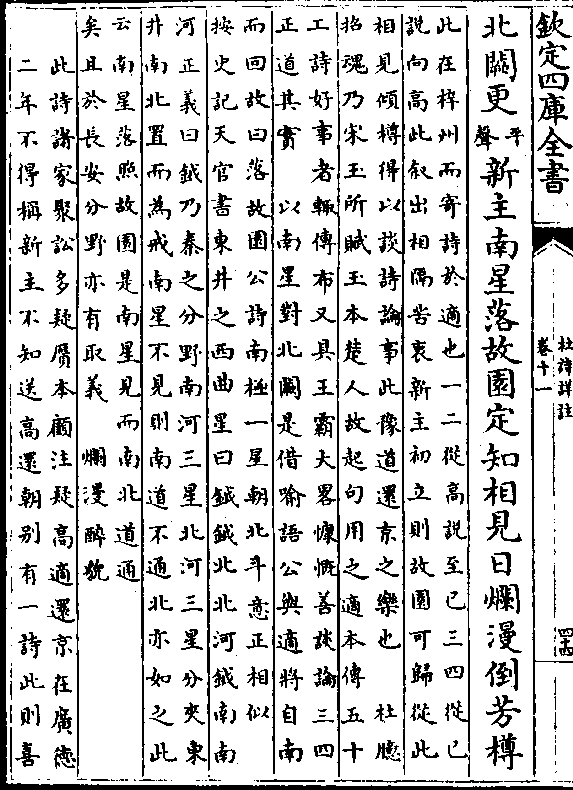 欽定四庫全書
杜詩詳註
卷十一
四十四
北闕更平聲新主南星落故園定知相見日爛漫倒芳樽
此在梓州而寄詩於適也一二從高說至已三四從已
說向高此叙出相隔苦衷新主初立則故園可歸從此
相見傾樽得以談詩論事此豫道還京之樂也 杜臆
招魂乃宋玉所賦玉本楚人故起句用之適本傳五十
工詩好事者輒傳布又具王霸大畧慷慨善談論三四
正道其實 以南星對北闕是借喻語公與適將自南
而回故曰落故園公詩南極一星朝北斗意正相似
按史記天官書東井之西曲星曰鉞鉞北北河鉞南南
河正義曰鉞乃秦之分野南河三星北河三星分夾東
井南北置而為戒南星不見則南道不通北亦如之此
云南星落照故園是南星見而南北道通
矣且於長安分野亦有取義 爛漫醉貌
此詩諸家聚訟多疑贋本顧注疑高適還京在廣德
二年不得稱新主不知送高還朝别有一詩此則喜